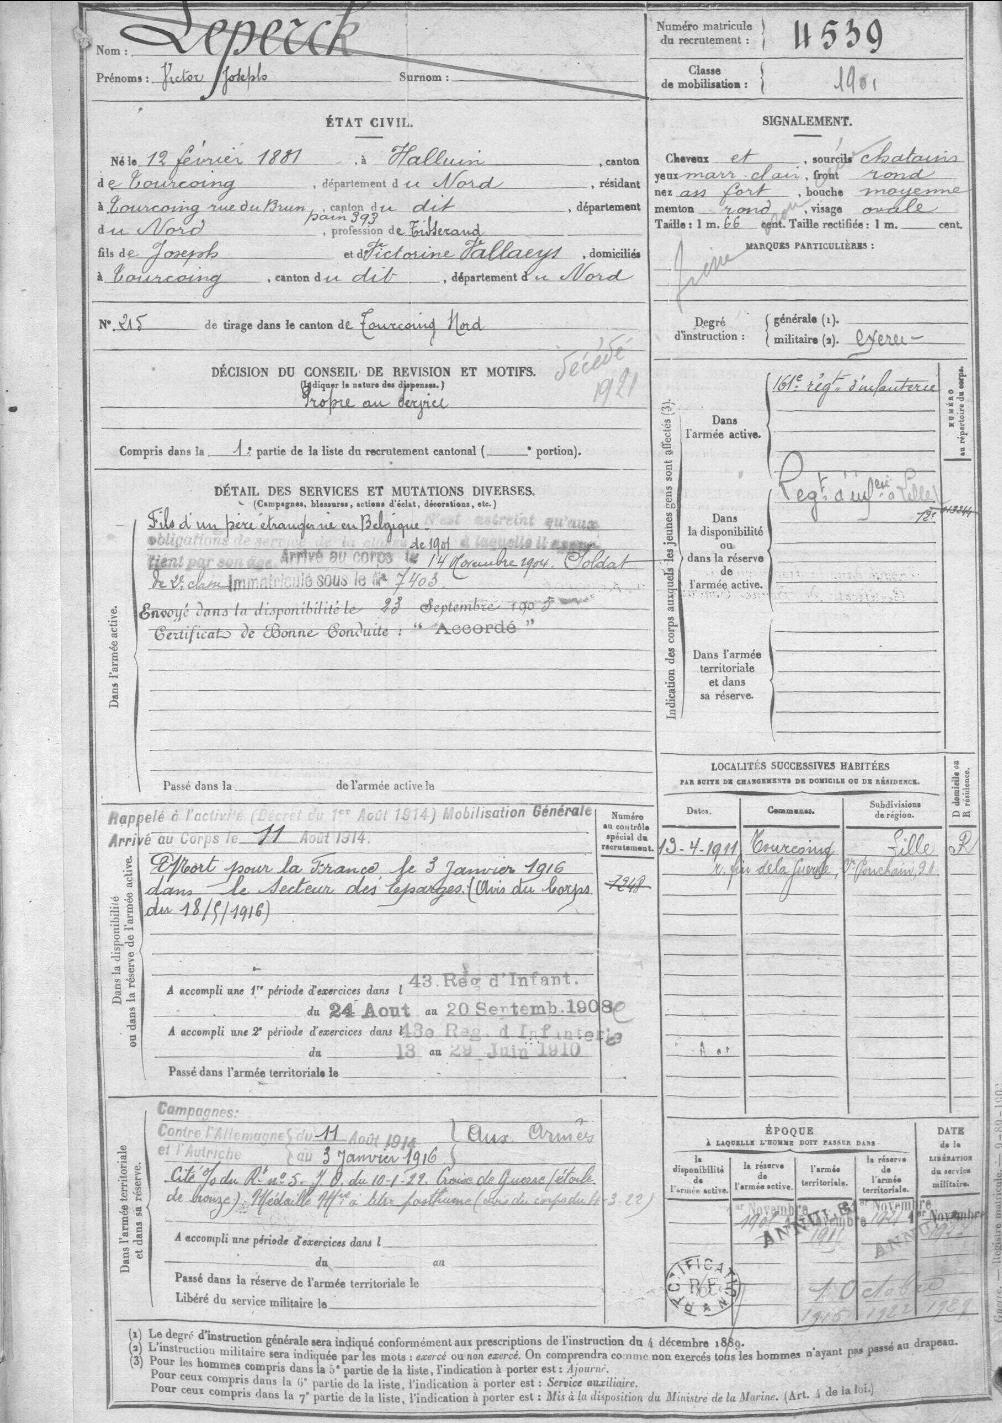 Nom : Leperck
Prénoms : Victor Joseph Surnom :
Numéro matricule du recrutement : 4539
Classe de mobilisation : 1901
ÉTAT CIVIL.
Né le 12 février 1881, à Halluin, canton
de Tourcoing, département du Nord, résidant
à Tourcoing rue du Brun pain 393, canton du dit, département
du Nord, profession de Tisserand
fils de Joseph et de Victorine Vallaeys, domiciliés
à Tourcoing, canton du dit, département du Nord
N° 215 de tirage dans le canton de Tourcoing Nord
SIGNALEMENT.
Cheveux et, sourcils chatains
yeux marr. clair, front rond
nez as. fort, bouche moyenne
menton rond, visage ovale
Taille : 1 m. 66 cent. Taille rectifiée : 1 m. cent.
MARQUES PARTICULIÈRES :
Degré d'instruction : générale (1).
militaire (2). exercé
DÉCISION DU CONSEIL DE REVISION ET MOTIFS.
(Indiquer la nature des dispenses.)
Propre au service
décédé
1921
Compris dans la 1e partie de la liste du recrutement cantonal ( portion).
DÉTAIL DES SERVICES ET MUTATIONS DIVERSES.
(Campagnes, blessures, actions d'éclat, décorations, etc.)
Dans l'armée active.
Fils d'un père étranger né en Belgique N'est astreint qu'aux
obligations de service de la classe de 1901 à laquelle il appar-
tient par son âge. Arrivé au corps le 14 Novembre 1904. Soldat
de 2e classe Immatriculé sous le N° 7403
Envoyé dans la disponibilité le 23 Septembre 1905
Certificat de Bonne Conduite : " Accordé "
Passé dans la de l'armée active le
Indication des corps auxquels les jeunes gens sont affectés (3).
Dans l'armée active. 161e régt d'infanterie
NUMÉRO au répertoire du corps.
Dans la disponibilité ou dans la réserve de l'armée active. Régt d'inferie Lille
Dans l'armée territoriale et dans sa réserve.
LOCALITÉS SUCCESSIVES HABITÉES
PAR SUITE DE CHANGEMENTS DE DOMICILE OU DE RÉSIDENCE.
Dates. Communes. Subdivisions de région. D domicile ou R résidence.
13-4-1911 Tourcoing Lille R
r. fin de la Guerre, 20
Dans la disponibilité ou dans la réserve de l'armée active.
Rappelé à l'activité (Décret du 1er Août 1914) Mobilisation Générale
Arrivé au Corps le 11 Août 1914
Numéro au contrôle spécial du recrutement.
7248
Mort pour la France, le 3 Janvier 1916
dans le Secteur des Eparges. (Avis du Corps
du 18/5/1916)
A accompli une 1re période d'exercices dans l 43. Rég d'Infant.
du 24 Aout au 20 Septemb. 1908
A accompli une 2e période d'exercices dans l 43e Reg. d Infanterie
du 13 au 29 Juin 1910
Passé dans l'armée territoriale le
Dans l'armée territoriale et dans sa réserve.
Campagnes:
Contre l'Allemagne du 11 Août 1914 Aux Armées
et l'Autriche au 3 Janvier 1916
Cité à l'o du Rt n° 5. J.O. du 10-1-22. Croix de Guerre (étoile
de bronze). Médaille Mre à titre posthume (avis du corps du 4-3-22)
A accompli une période d'exercices dans l
du au
Passé dans la réserve de l'armée territoriale le
Libéré du service militaire le
ÉPOQUE
À LAQUELLE L'HOMME DOIT PASSER DANS
la disponibilité de l'armée active. la réserve de l'armée active. l'armée territoriale. la réserve de l'armée territoriale.
DATE de la LIBÉRATION du service militaire.
ANNULÉ
ANNULÉ
RECTIFICATION
R F
1 Octobre
1915 1922 1928
(1) Le degré d'instruction générale sera indiqué conformément aux prescriptions de l'instruction du 4 décembre 1889.
(2) L'instruction militaire sera indiquée par les mots : exercé ou non exercé. On comprendra comme non exercés tous les hommes n'ayant pas passé au drapeau.
(3) Pour les hommes compris dans la 5e partie de la liste, l'indication à porter est : Ajourné.
Pour ceux compris dans la 6e partie de la liste, l'indication à porter est : Service auxiliaire.
Pour ceux compris dans la 7e partie de la liste, l'indication à porter est : Mis à la disposition du Ministre de la Marine. (Art. 4 de la loi.)